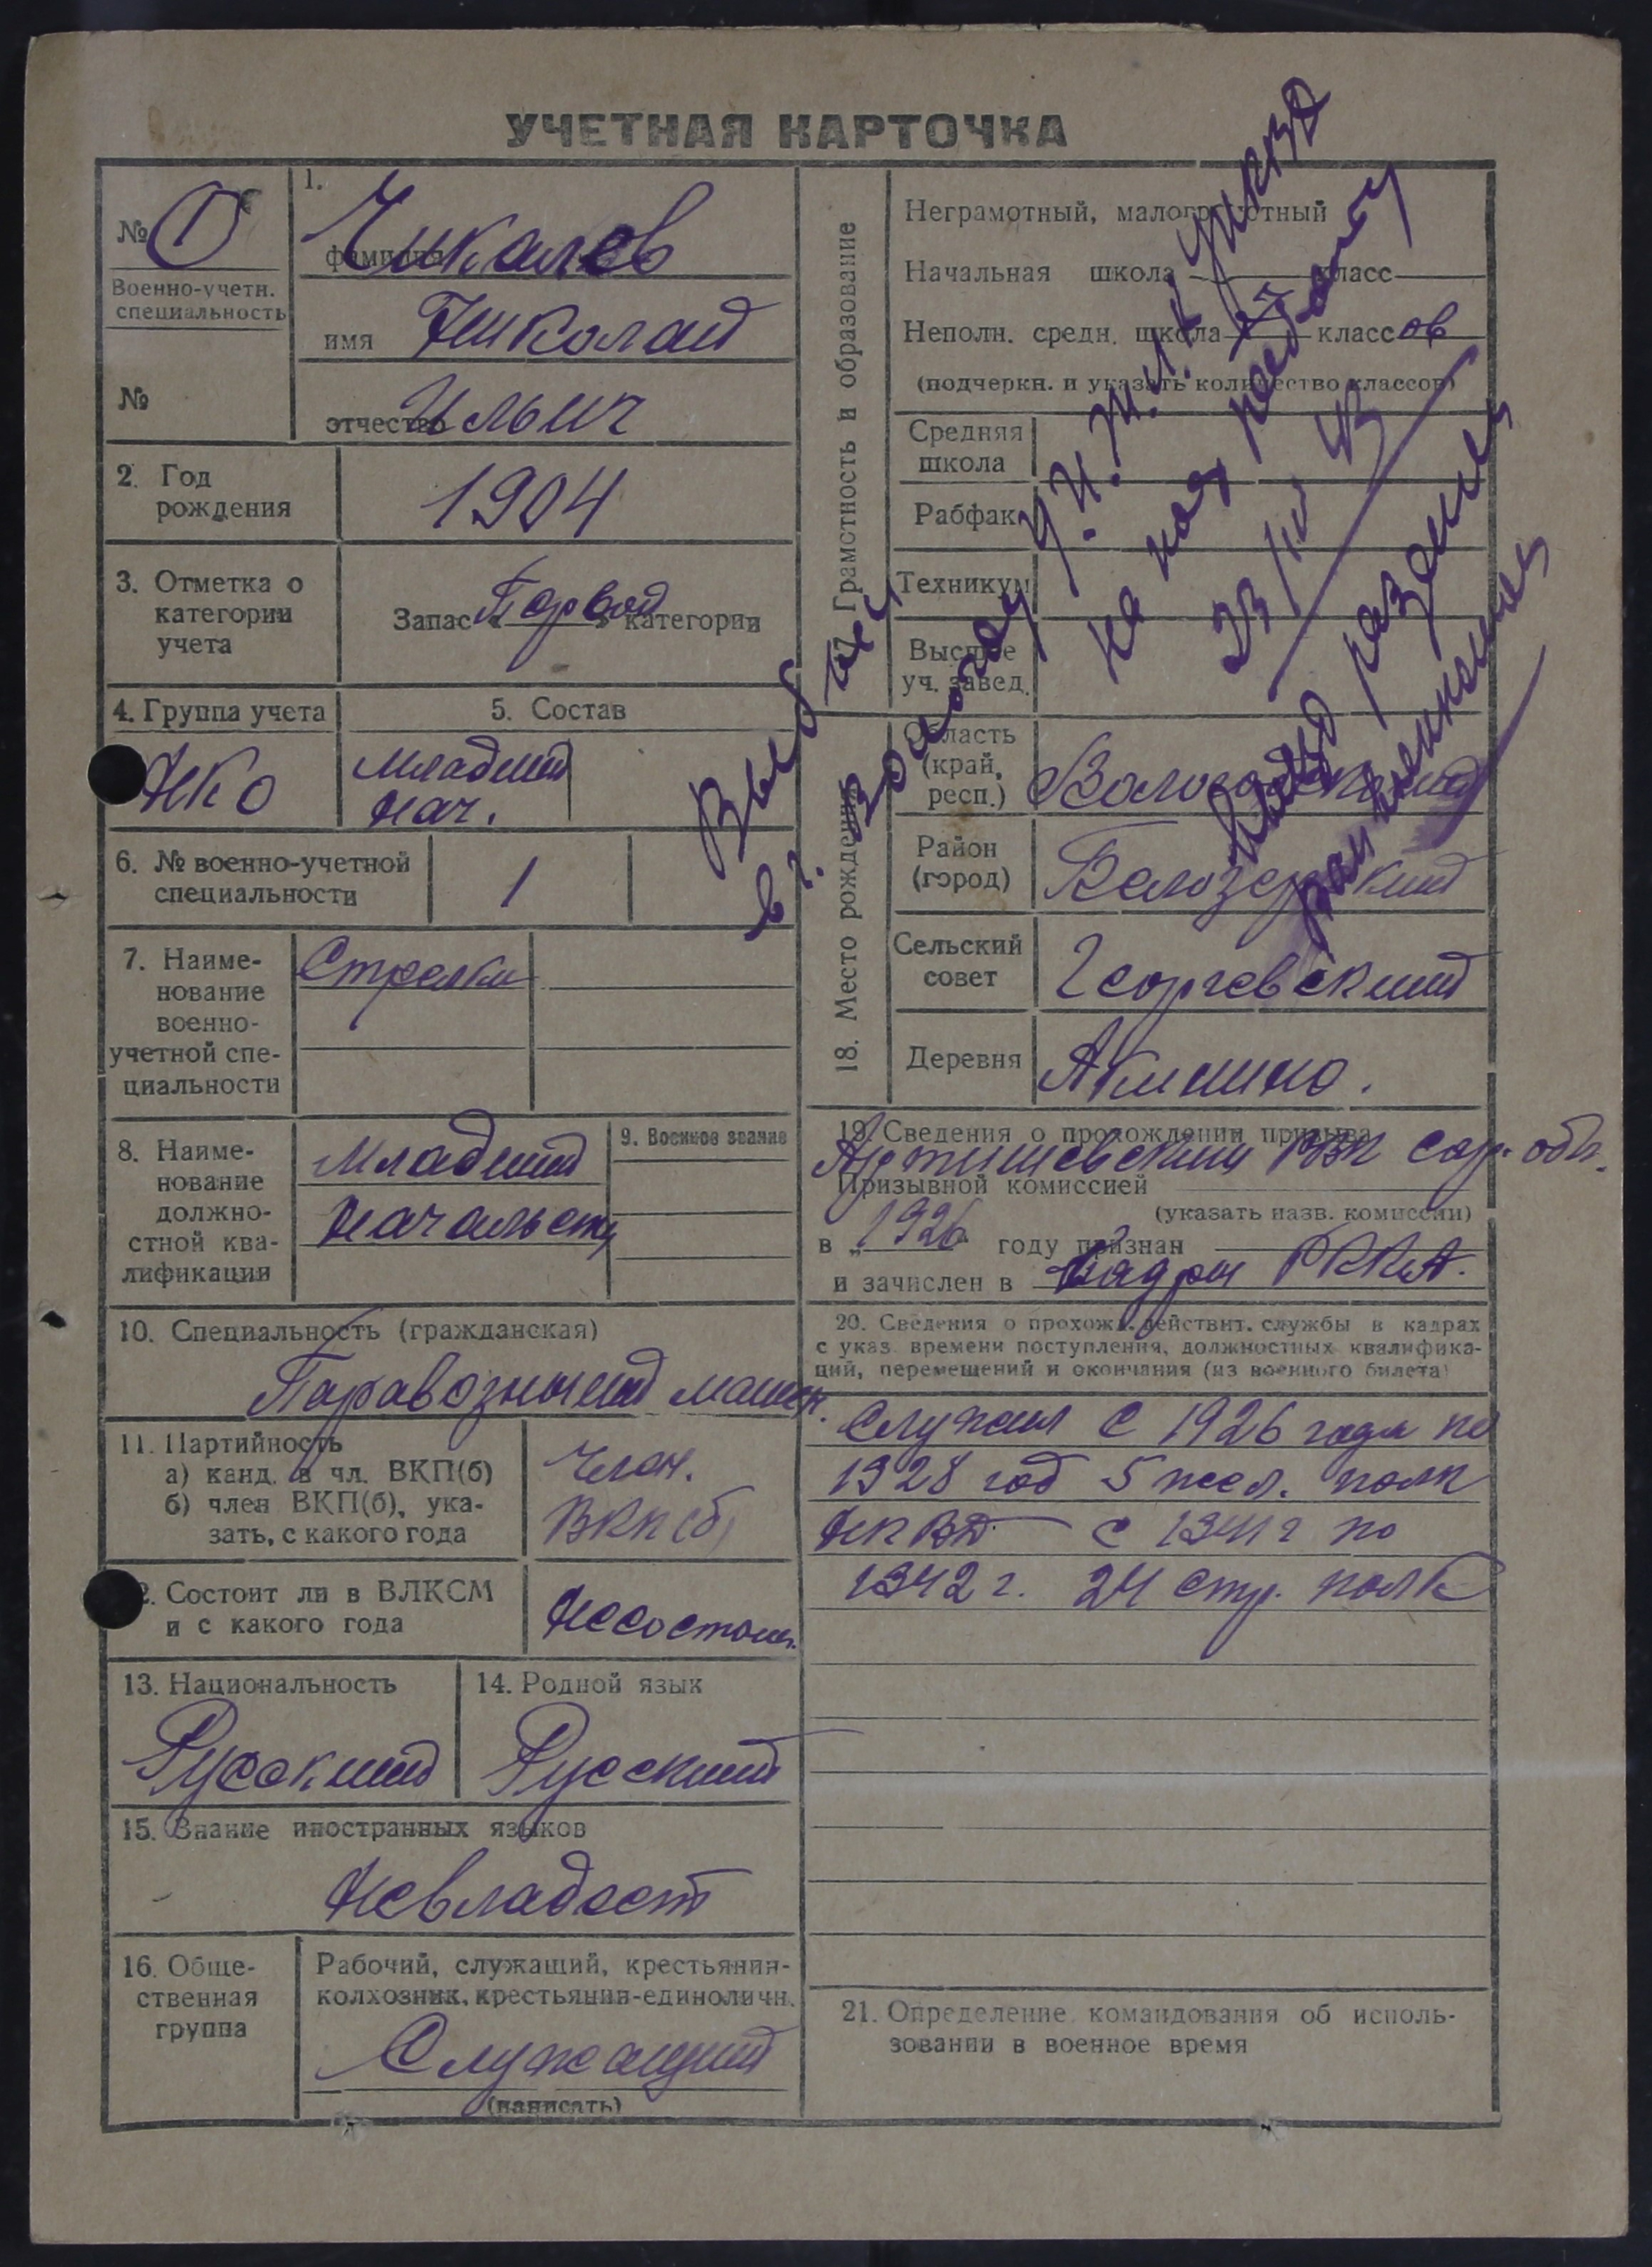 УЧЕТНАЯ КАРТОЧКА
№ 1
Военно-учетн.
специальность
№
1.
фамилия Чикалев
имя Николай
отчество Ильич
2. Год
рождения
1904
3. Отметка о
категории
учета
Запас „Первой“ категории
4. Группа учета
НКО
5. Состав
младший
нач.
6. № военно-учетной
специальности
1
7. Наиме-
нование
военно-
учетной спе-
циальности
Стрелки
8. Наиме-
нование
должно-
стной ква-
лификации
Младший
начальст
9. Военное звание
10. Специальность (гражданская)
Паравозный машин.
11. Партийность
а) канд. в чл. ВКП(б)
б) член ВКП(б), ука-
зать, с какого года
Член.
ВКП(б)
12. Состоит ли в ВЛКСМ
и с какого года
Несостоит.
13. Национальность
Русский
14. Родной язык
Русский
15. Знание иностранных языков
Невладеет
16. Обще-
ственная
группа
Рабочий, служащий, крестьянин-
колхозник, крестьянин-единоличн.
Служащий
(написать)
Грамотность и образование
Неграмотный, малограмотный
Начальная школа класс
Неполн. средн. школа классов
(подчеркн. и указать количество классов)
Средняя
школа
Рабфак
Техникум
Высшее
уч. завед.
18. Место рождения
Область
(край,
респ.)
Вологодский
Район
(город)
Белозерский
Сельский
совет
Георгевский
Деревня
Акинино.
19. Сведения о прохождении призыва
РВК сар. обл.
Призывной комиссией
(указать назв. комиссии)
в „1926“ году признан
и зачислен в Кадры РККА.
20. Сведения о прохожд. действит. службы в кадрах
с указ. времени поступления, должностных квалифика-
ций, перемещений и окончания (из военного билета)
Служил с 1926 года по
1928 год 5 жел. полк
НКВД. с 1941 г по
1942 г. 24 стр. полк
21. Определение командования об исполь-
зовании в военное время
Выбыл
в г. Вологду
на
23/IV 43